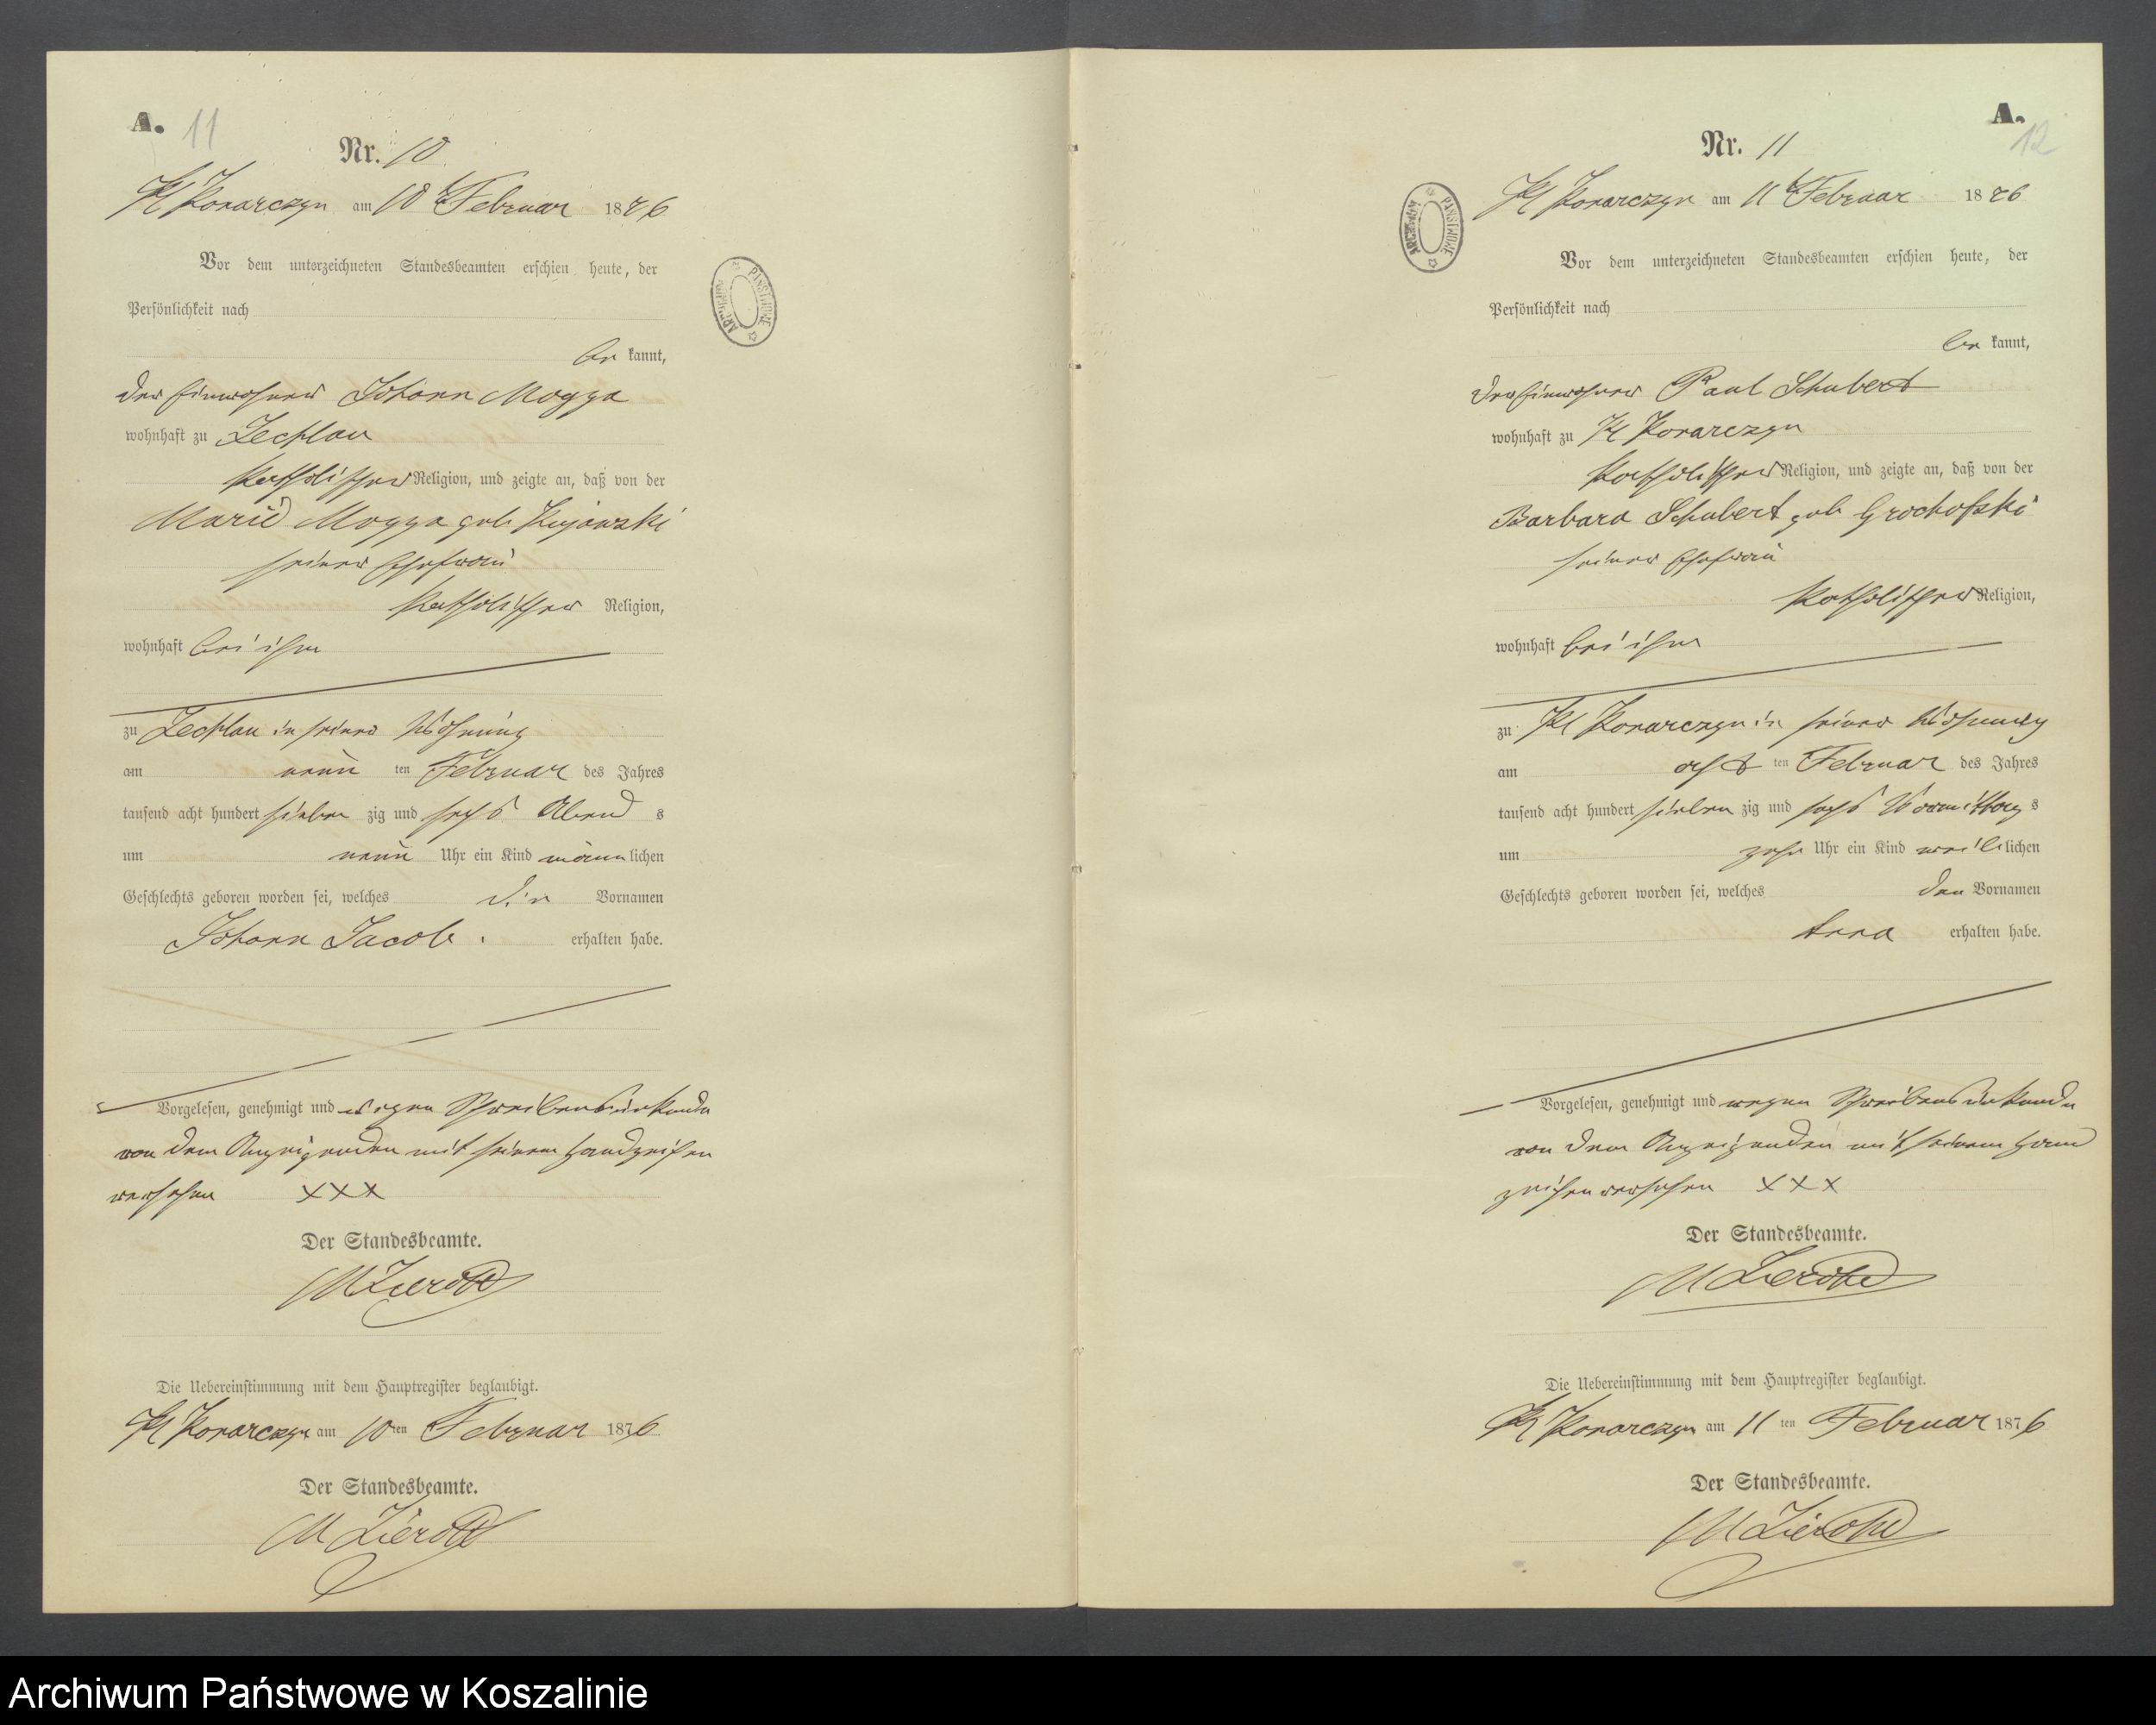 A. 11
Nr. 10
Kl Konarczyn am 10t Februar 1876
Vor dem unterzeichneten Standesbeamten erschien heute, der
Persönlichkeit nach
be kannt,
der Einwohner Johann Mogga
wohnhaft zu Zechlau
katholischer Religion, und zeigte an, daß von der
Marie Mogga geb Kujawski
seiner Ehefrau
katholischer Religion,
wohnhaft bei ihm
zu Zechlau in seiner Wohnung
am neun ten Februar des Jahres
tausend acht hundert sieben zig und sechs Abend s
um neun Uhr ein Kind männ lichen
Geschlechts geboren worden sei, welches die Vornamen
Johann Jacob. erhalten habe.
Vorgelesen, genehmigt und wegen Schreibensunkunde
von dem Anzeigenden mit seinem Handzeichen
versehen XXX
Der Standesbeamte.
M
Die Uebereinstimmung mit dem Hauptregister beglaubigt.
Kl Konarczyn am 10 ten Februar 1876
Der Standesbeamte.
M
ARCHIWUM PAŃSTWOWE
A.
12
Nr. 11
Kl Konarczyn am 11t Februar 1876
Vor dem unterzeichneten Standesbeamten erschien heute, der
Persönlichkeit nach
be kannt,
der Einwohner Paul Schubert
wohnhaft zu Kl Konarczyn
katholischer Religion, und zeigte an, daß von der
Barbara Schubert geb Grochofski
seiner Ehefrau
katholischer Religion,
wohnhaft bei ihm
zu Kl Konarczyn in seiner Wohnung
am acht ten Februar des Jahres
tausend acht hundert sieben zig und sechs Vormittag s
um zehn Uhr ein Kind weib lichen
Geschlechts geboren worden sei, welches den Vornamen
Anna erhalten habe.
Vorgelesen, genehmigt und wegen Schreibensunkunde
von dem Anzeigenden mit seinem Hand
zeichen versehen XXX
Der Standesbeamte.
M
Die Uebereinstimmung mit dem Hauptregister beglaubigt.
Kl Konarczyn am 11 ten Februar 1876
Der Standesbeamte.
M
ARCHIWUM PAŃSTWOWE
Archiwum Państwowe w Koszalinie